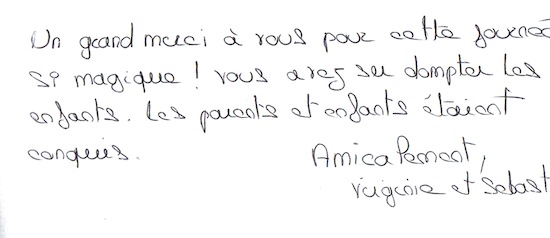 Un grand merci à vous pour cette journée
si magique ! vous avez su dompter les
enfants. Les parents et enfants étaient
conquis.
Amicalement,
Virginie et Sebast